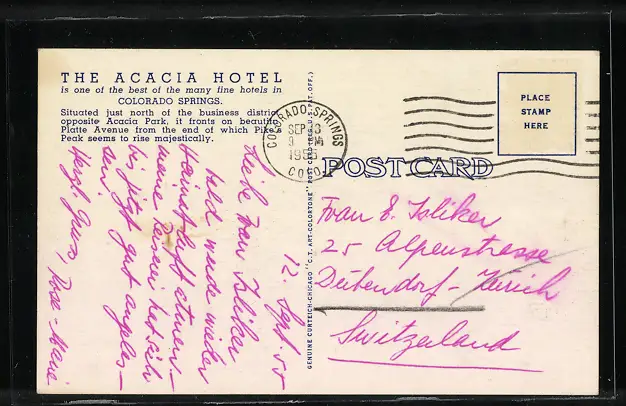 THE ACACIA HOTEL
is one of the best of the many fine hotels in
COLORADO SPRINGS.
Situated just north of the business district
opposite Acacia Park, it fronts on beautiful
Platte Avenue from the end of which Pike's
Peak seems to rise majestically.
COLORADO SPRINGS
SEP 13
9
1955
COLO.
PLACE
STAMP
HERE
POST CARD
GENUINE CURTEICH-CHICAGO "C.T. ART-COLORTONE" POST CARD (REG. U.S. PAT. OFF.)
12. Sept 55
Liebe Frau Isliker
bald werde wieder
Heimatluft atmen –
meine Reiserei hat sich
bis jetzt gut angelas–
sen!
Herzl. Gruss, Rose-Marie
Frau E. Isliker
25 Alpenstrasse
Dübendorf - Zürich
Switzerland